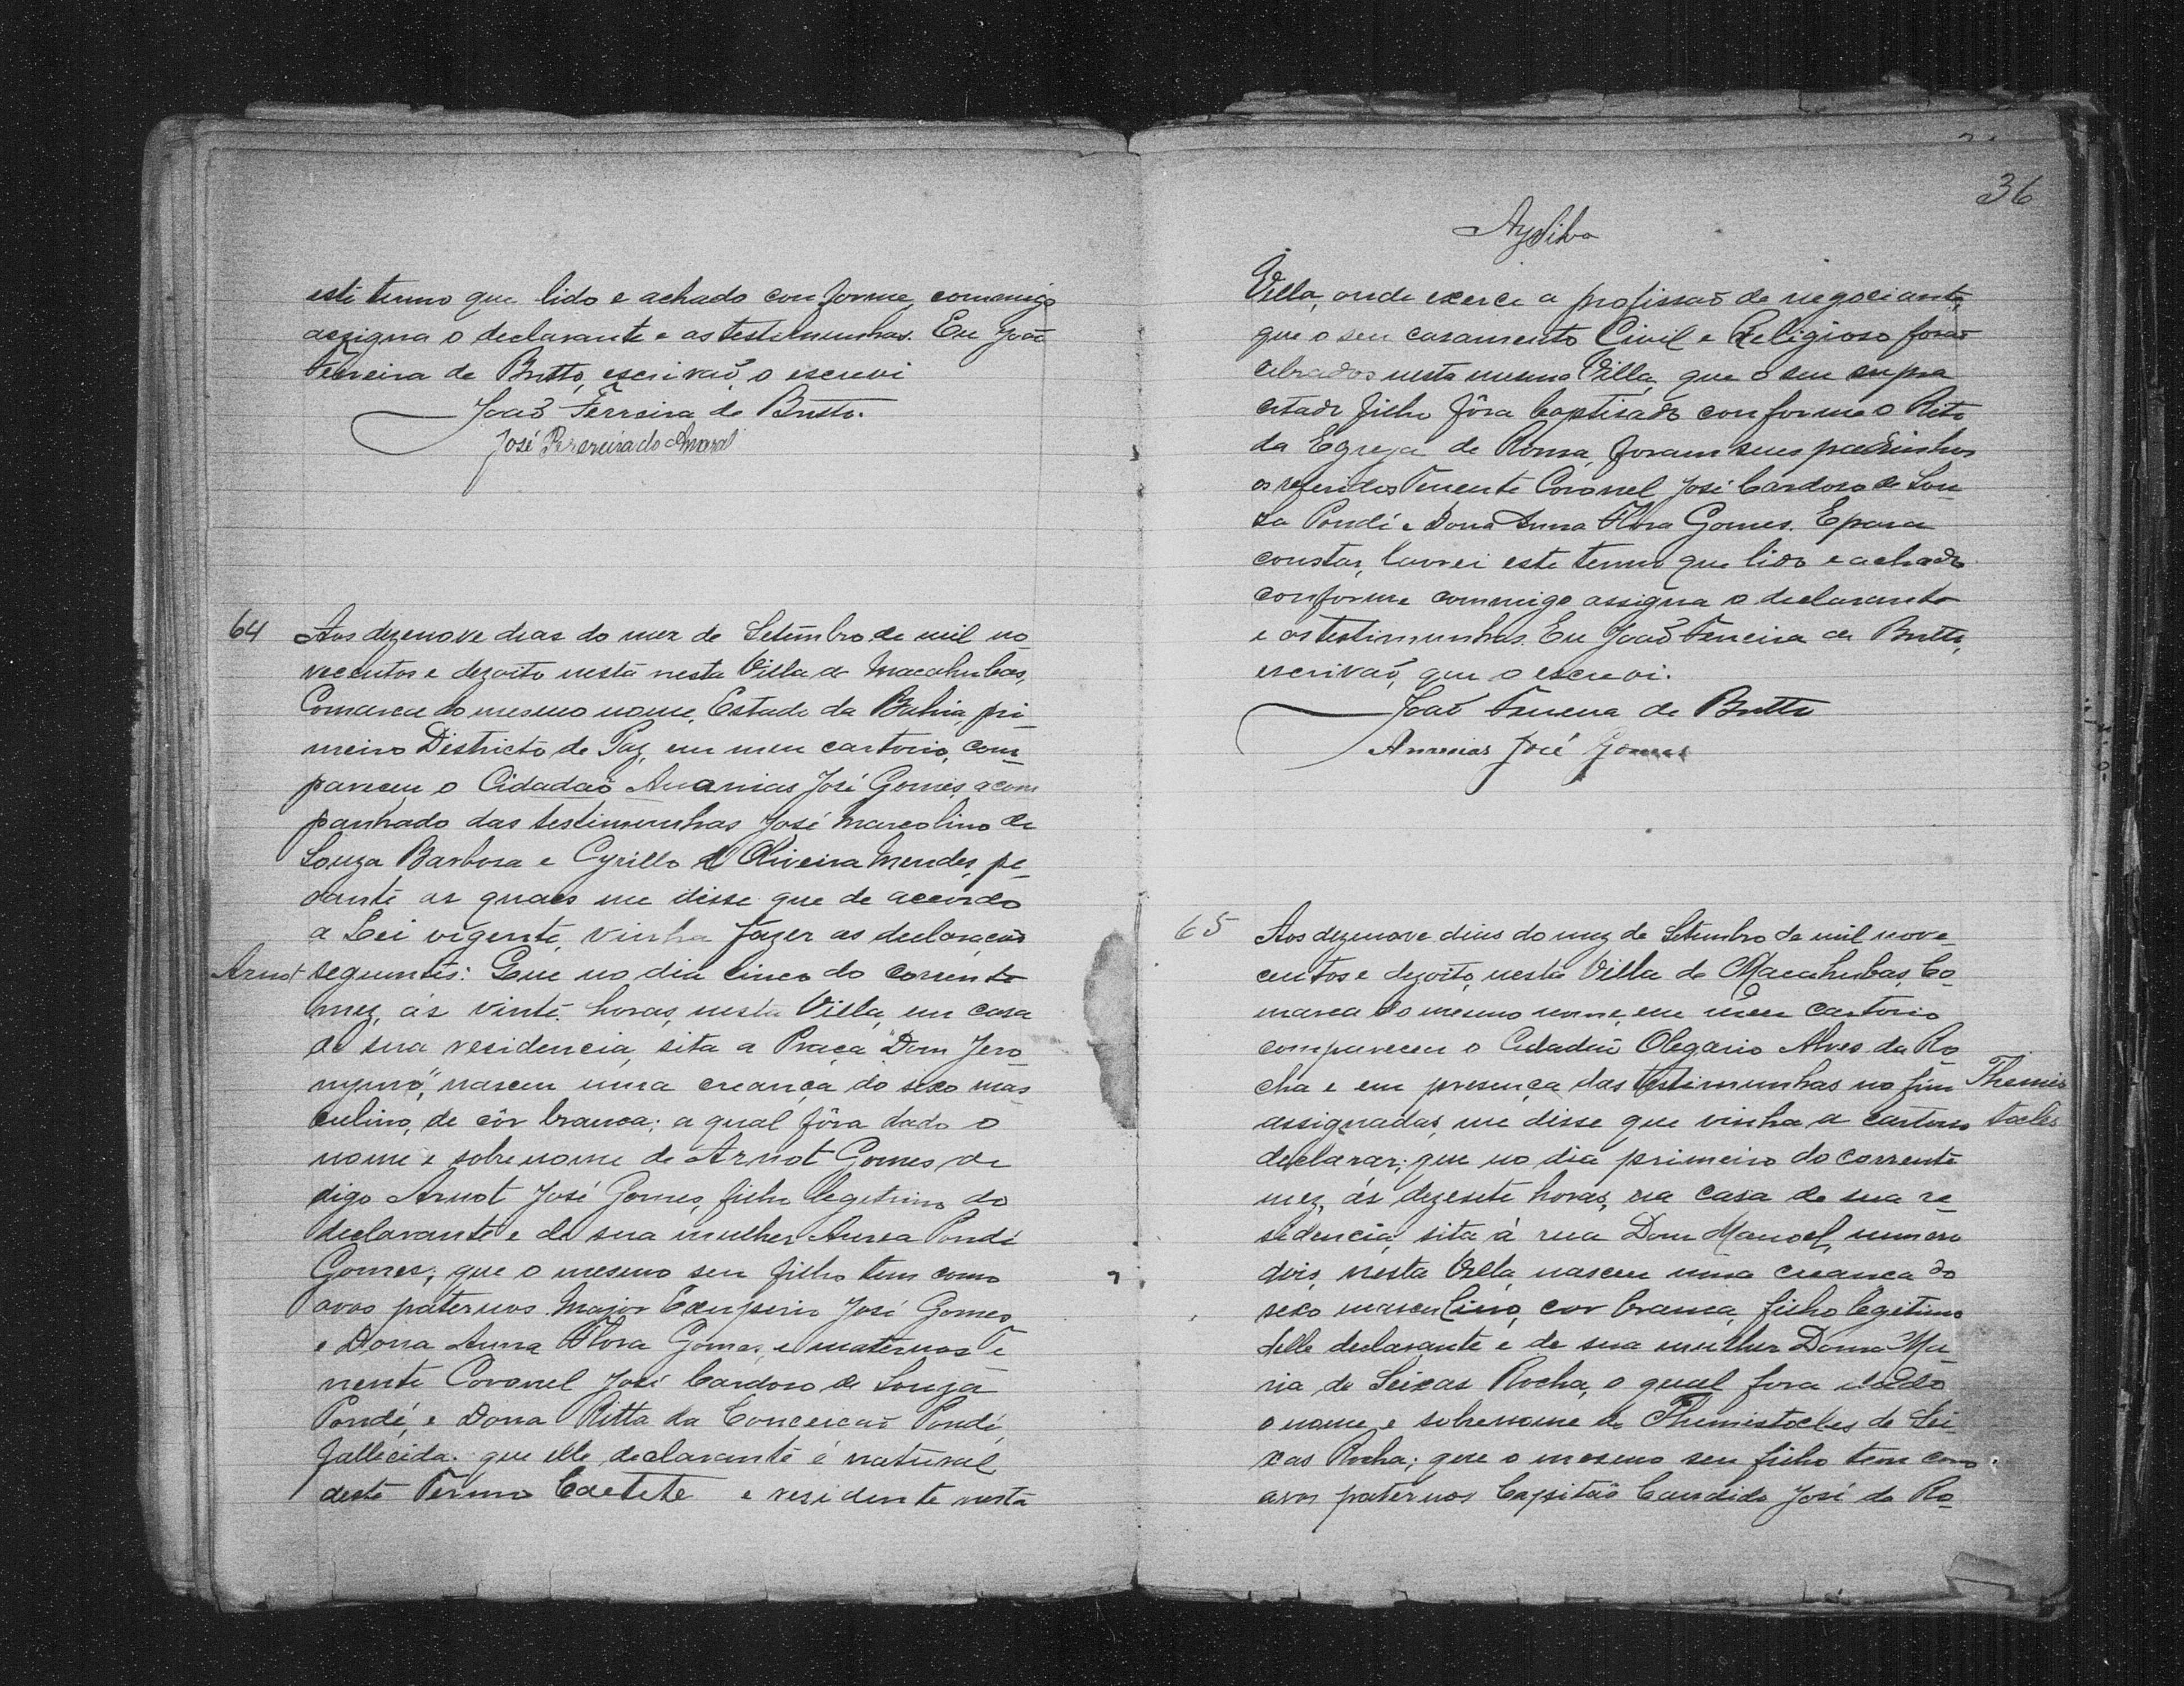 este termo que lido e achado conforme, commigo
assigna o declarante e as testemunhas. Eu João
Ferreira de Britto, escrivão, o escrevi
João Ferreira de Britto.
José Pereira do Amaral
64
Aos dezenove dias do mez de Setembro de mil no
vecentos e dezoito nesta nesta Villa de Macahubas,
Comarca do mesmo nome, Estado da Bahia, pri
meiro Districto de Paz, em meu cartorio, com
pareceu o Cidadão Ananias José Gomes, acom
panhado das testimunhas José Marcolino de
Souza Barbosa e Cyrillo d'Oliveira Mendes, pe
rante as quaes me disse que de accordo
a Lei vigente, vinha fazer as declarações
Arnot
seguintes: Que no dia cinco do corrente
mez, ás vinte horas, nesta Villa, em casa
de sua residencia, sita a Praça "Dom Jero
nymo", nasceu uma creança do sexo mas
culino, de côr branca; a qual fôra dado o
nome e sobrenome de Arnot Gomes, de
digo Arnot José Gomes, filho legitimo do
declarante e de sua mulher Aurea Pondé
Gomes; que o mesmo seu filho tem como
avos paternos Major Exuperio José Gomes
e Dona Anna Flora Gomes, e maternos Te
nente Coronel José Cardoso de Souza
Pondé, e Dona Ritta da Conceição Pondé,
fallecida. que elle declarante é natural
deste Termo Caetete e residente nesta
36
Villa, onde exerce a profissão de negociante,
que o seu casamento Civil e Religioso forão
celbrados nesta mesma Villa, que o seu supra
citado filho fôra baptisado conforme o Rito
da Egreja de Roma, foram seus padrinhos
os referidos Tenente Coronel José Cardoso de Sou
za Pondé e Dona Anna Flora Gomes. E para
constar, lavrei este termo que lido e achado
conforme commigo assigna o declarante
e as testimunhas. Eu João Ferreira de Britto,
escrivão, que o escrevi.
João Ferreira de Britto
Ananias José Gomes
65
Aos dezenove dias do mez de Setembro de mil nove
centos e dezoito, nesta Villa de Macahubas, Co
marca do mesmo nome, em meu cartorio
compareceu o Cidadão Olegario Alves da Ro
cha e em presença das testimunhas no fim
Themis
assignadas, me disse que vinha a cartorio
tocles
declarar; que no dia primeiro do corrente
mez, ás dezesete horas, na casa de sua re
sidencia, sita á rua Dom Manoel, numero
dois, nesta Villa, nasceu uma creança do
sexo masculino, cor branca, filho legitimo
delle declarante e de sua mulher Dona Ma
ria de Seixas Rocha, o qual fora dado
o nome e sobrenome de Themistocles de Sei
xas Rocha; que o mesmo seu filho tem como
avos paternos Capitão Candido José da Ro